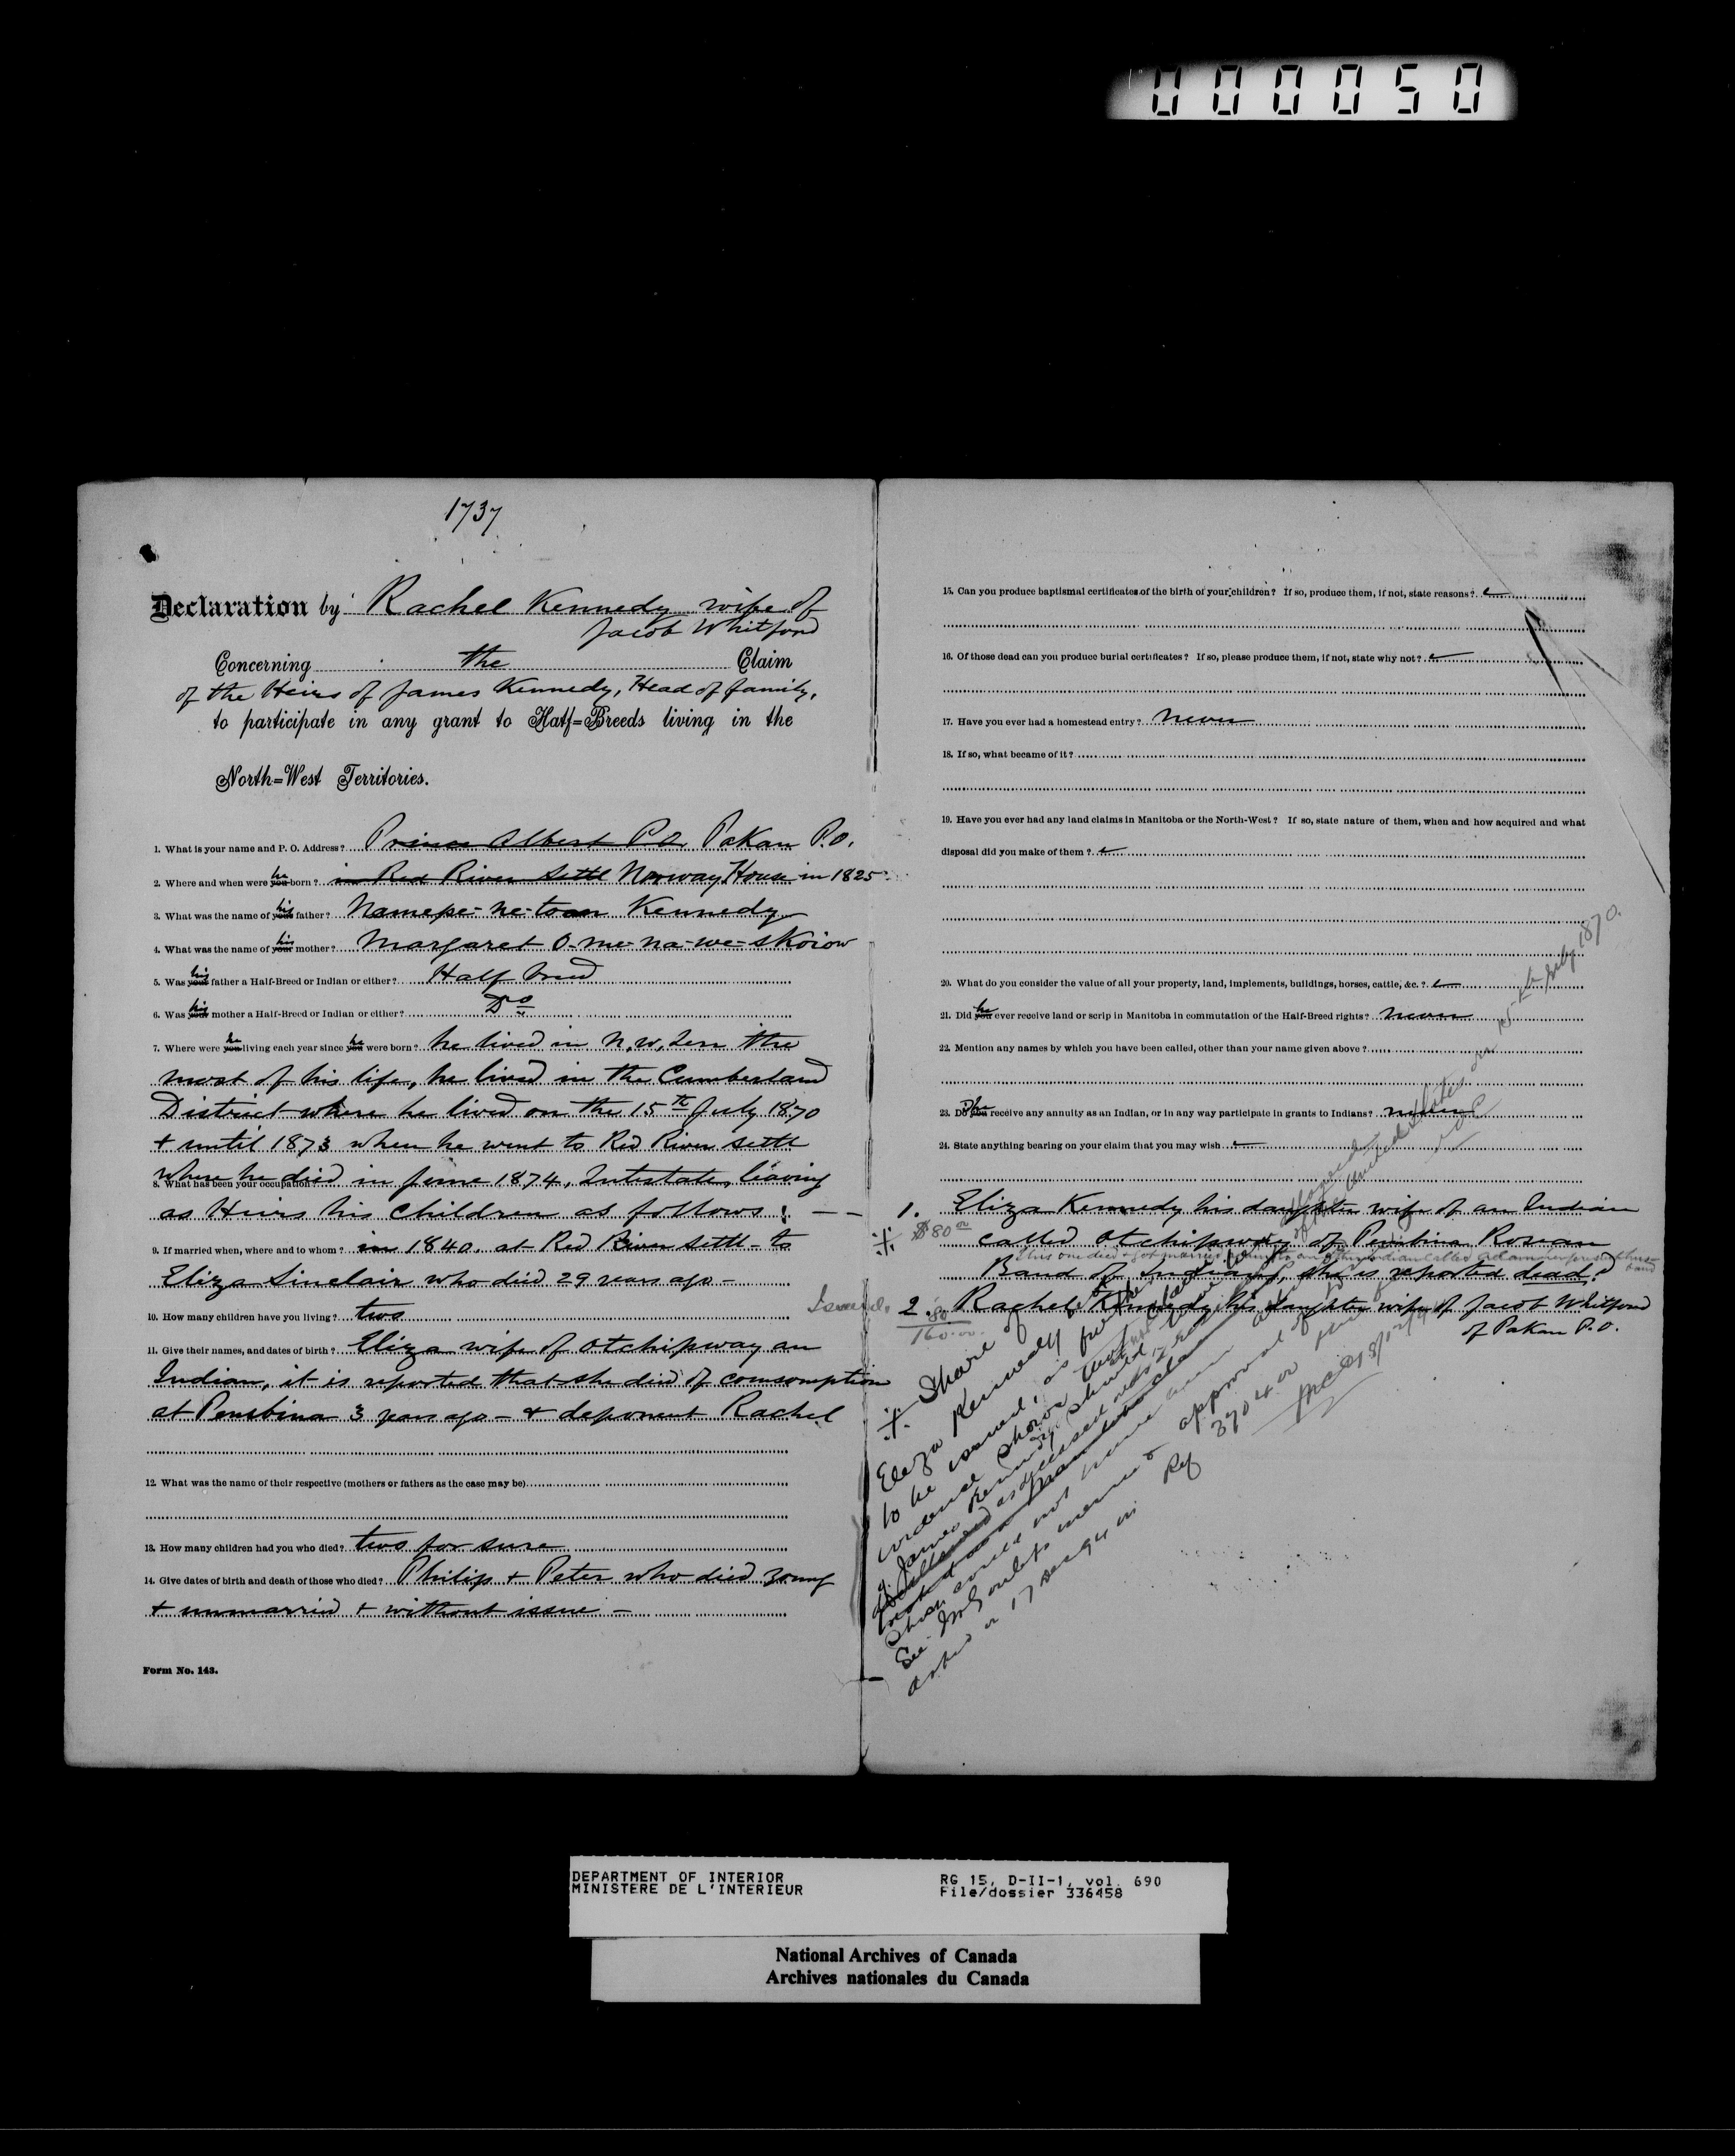 000050
1737
Declaration by Rachel Kennedy wife of
Jacob Whitford
Concerning the Claim
of the Heirs of James Kennedy, Head of family,
to participate in any grant to Half=Breeds living in the
North=West Territories.
1. What is your name and P. O. Address? Prince Albert P.O. Pakan P.O.
2. Where and when were you he born? in Red River Settl Norway House in 1825
3. What was the name of your his father? Namepe-ne-toan Kennedy
4. What was the name of your his mother? Margaret O-me-na-we-skoiow
5. Was your his father a Half-Breed or Indian or either? Half breed
6. Was your his mother a Half-Breed or Indian or either? Do
7. Where were you he living each year since you he were born? he lived in N.W. Terr the
most of his life, he lived in the Cumberland
District where he lived on the 15th July 1870
+ until 1873 when he went to Red River Settl
where he died in June 1874, Intestate, leaving
8. What has been your occupation?
as Heirs his children as follows:
9. If married when, where and to whom? in 1840. at Red River Settl - to
Eliza Sinclair who died 29 years ago -
10. How many children have you living? two
11. Give their names, and dates of birth? Eliza wife of Otchipway an
Indian, it is reported that she died of comsomption
at Pembina 3 years ago - + deponent Rachel
12. What was the name of their respective (mothers or fathers as the case may be)
13. How many children had you who died? two for sure
14. Give dates of birth and death of those who died? Philip + Peter who died young
+ unmarried + without issue -
Form No. 143.
15. Can you produce baptismal certificates of the birth of your children? If so, produce them, if not, state reasons?
16. Of those dead can you produce burial certificates? If so, please produce them, if not, state why not?
17. Have you ever had a homestead entry? never
18. If so, what became of it?
19. Have you ever had any land claims in Manitoba or the North-West? If so, state nature of them, when and how acquired and what
disposal did you make of them?
20. What do you consider the value of all your property, land, implements, buildings, horses, cattle, &c.?
21. Did you he ever receive land or scrip in Manitoba in commutation of the Half-Breed rights? never
22. Mention any names by which you have been called, other than your name given above?
23. Do you receive any annuity as an Indian, or in any way participate in grants to Indians? never
24. State anything bearing on your claim that you may wish
1. Eliza Kennedy his daughter wife of an Indian
$80.00
called Otchipway of Pembina Roseau
Band of Indians, she is reported dead?
2. Rachel Kennedy his daughter wife of Jacob Whitford
of Pakan P.O.
80
160.00
Share of
Eliza Kennedy
to be issued, as further
evidence shows that
James Kennedy
approval of
See
17 Dec 94 in Ref 37042
15th July 1870.
DEPARTMENT OF INTERIOR
MINISTERE DE L'INTERIEUR
RG 15, D-II-1, vol. 690
File/dossier 336458
National Archives of Canada
Archives nationales du Canada